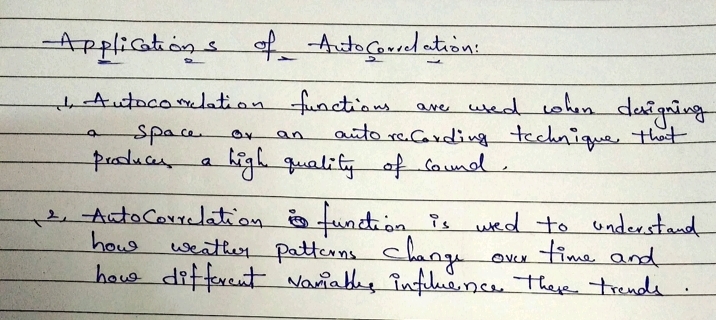 Applications of AutoCorrelation:
1, Autocorrelation functions are used when designing
a space or an auto recording technique that
produces a high quality of sound.
2, AutoCorrelation function is used to understand
how weather patterns change over time and
how different variables influence these trends.